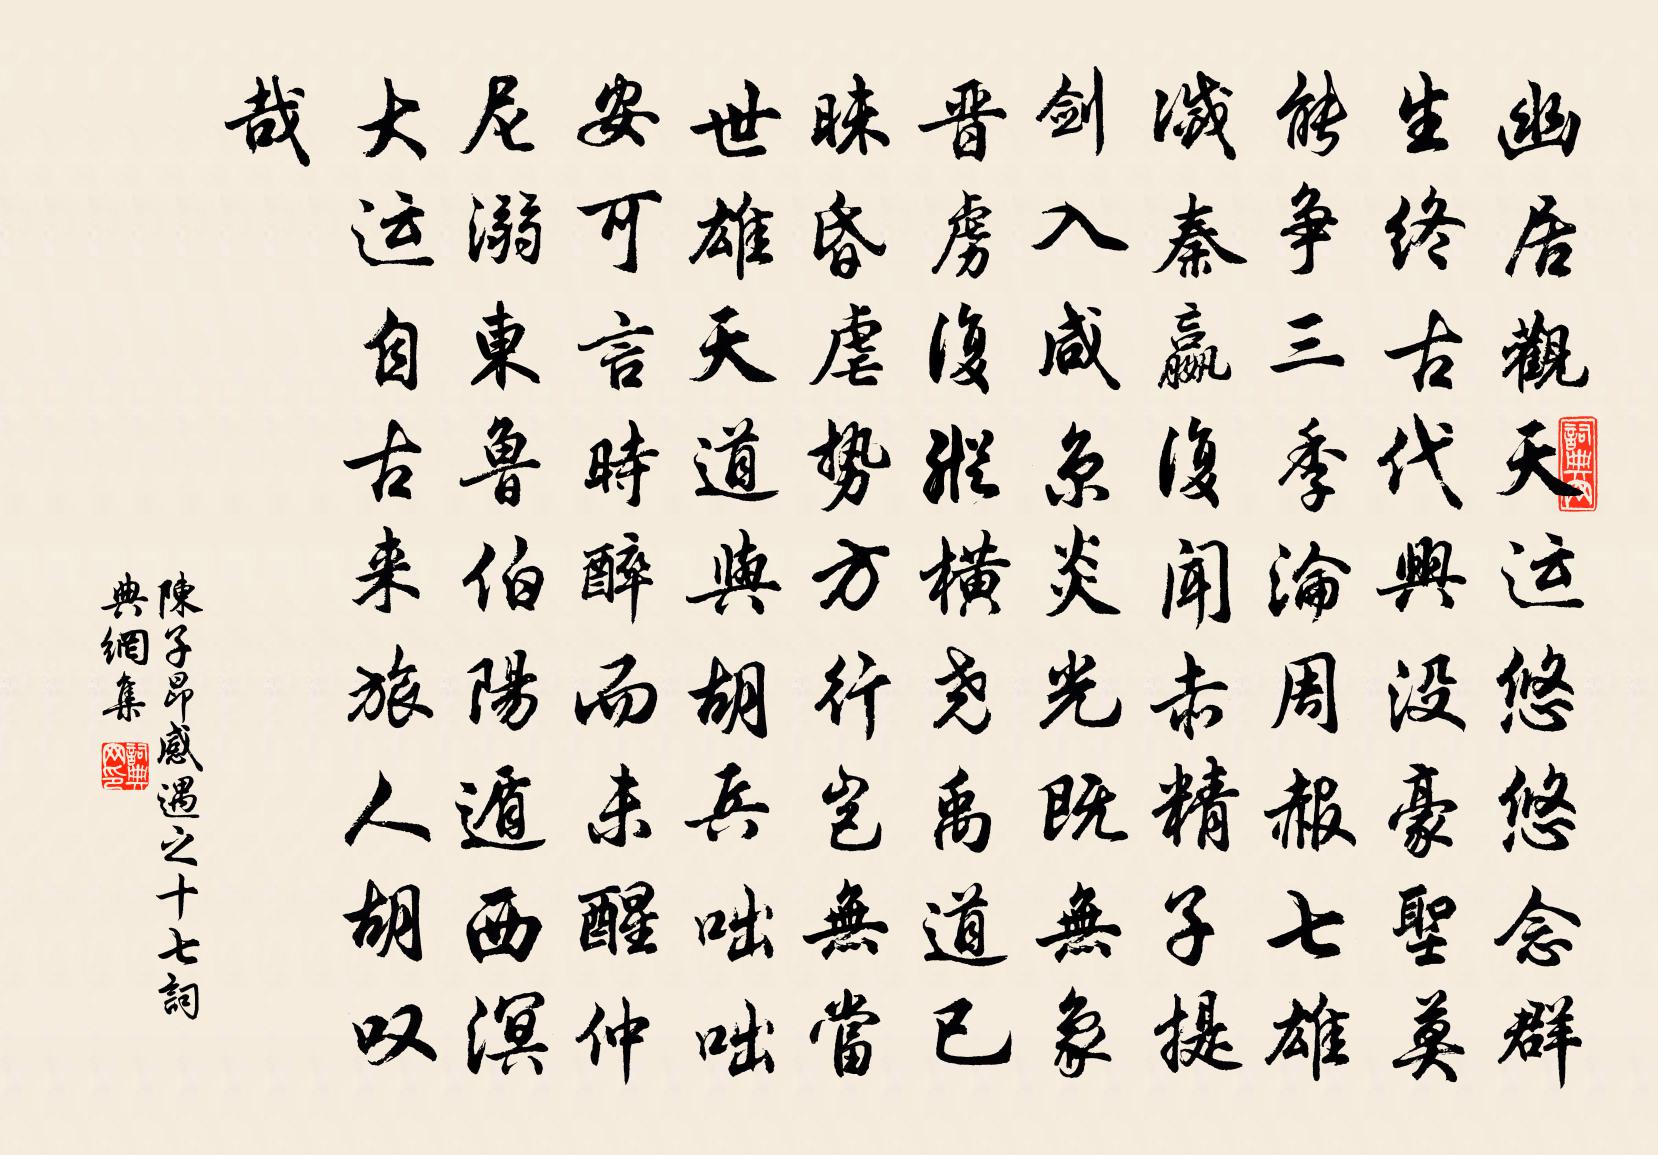 幽居觀天运悠悠念群
生终古代興没豪聖莫
能争三季淪周赧七雄
滅秦嬴復闻赤精子提
剑入咸京炎光既無象
晋虏復縱横尧禹道已
昧昏虐势方行岂無當
世雄天道與胡兵咄咄
安可言時醉而未醒仲
尼溺東魯伯陽遁西溟
大运自古来旅人胡叹
哉
陳子昂感遇之十七詞
典網集
詞典网
詞典网印